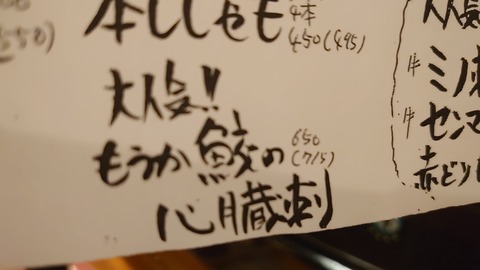 550)
本ししゃも
4本
450(495)
大人気!!
もうか鮫の
650
(715)
心臓刺
大人気
牛ミノ刺
牛センマ
赤どり